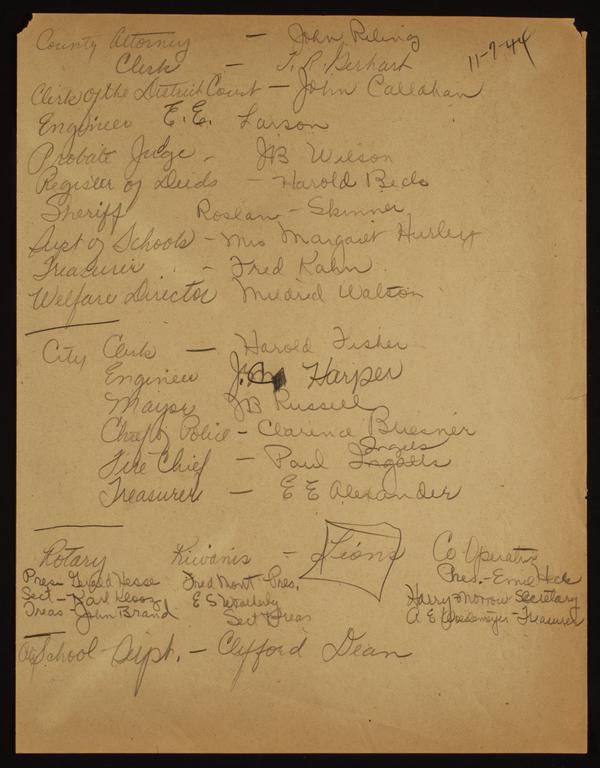 County Attorney — John Riling
11-7-44
Clerk — T. R. Gerhart
Clerk of the District Court — John Callahan
Engineer E. E. Larson
Probate Judge - JB Wilson
Register of Deeds — Harold Beck
Sheriff Roslan - Skinner
Supt of Schools - Mrs Margaret Hurley
Treasurer - Fred Kahn
Welfare Director Mildred Watson
City Clerk — Harold Fisher
Engineer J. Harper
Mayor JB Russell
Chief of Police - Clarence Bresner
Ingels
Fire Chief — Paul Ingalls
Treasurer — E E Alexander
Rotary Kiwanis — Lions Co Operative
Pres - Gerard Hesse Fred Mont Pres. Pres. - Ernie Heck
Sect - Karl Klooz E S Weatherby Harry Morrow Secretary
Treas - John Brand Sect Treas A. E - Treasurer
School Supt. - Clifford Dean